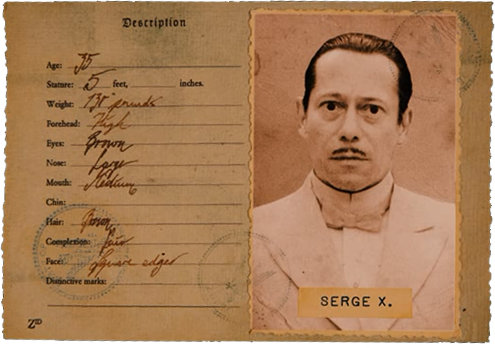 Description
Age: 35
Stature: 5 feet, inches.
Weight: 130 pounds
Forehead: High
Eyes: Brown
Nose: Large
Mouth: Medium
Chin:
Hair: Brown
Complexion: Fair
Face: Square edges
Distinctive marks:
SERGE X.